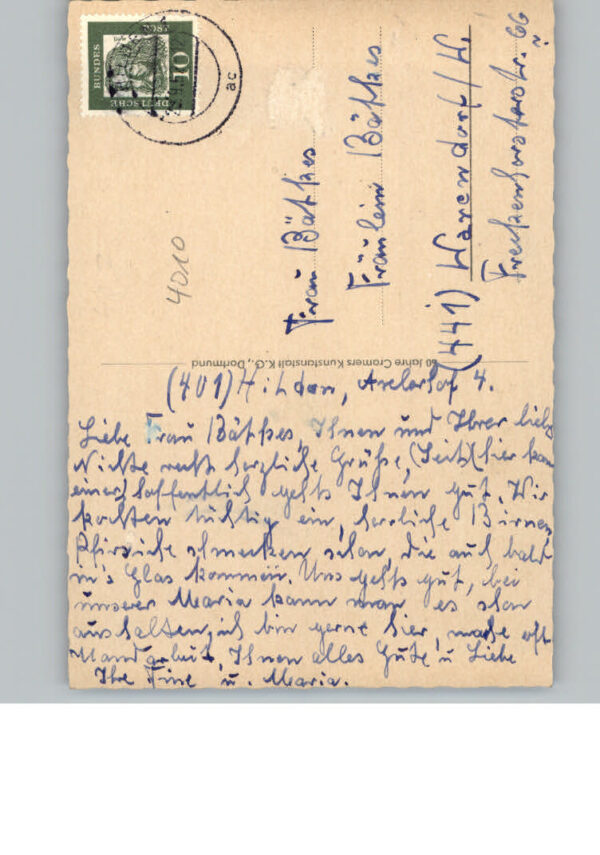 DEUTSCHE
BUNDES
POST
10
ac
4010
Frau Bäthes
Fräulein Bäthes
(441) Warendorf/W.
Freckenhorsterstr. 66
60 Jahre Cramers Kunstanstalt K.G., Dortmund
(401) Hilden, 4.
Liebe Frau Bäthes, Ihnen und Ihrer lieb
Nichte recht herzliche Grüße, (Seit) (hier kam
einer) hoffentlich gehts Ihnen gut. Wir
kochten tüchtig ein, herrliche Birnen,
Pfirsiche schmecken schon, die auch bald
in's Glas kommen. Uns gehts gut, bei
unserer Maria kann man es schon
aushalten, ich bin gerne hier, mache oft
Handarbeit, Ihnen alles Gute u Liebe
Ihre Fine u. Maria.